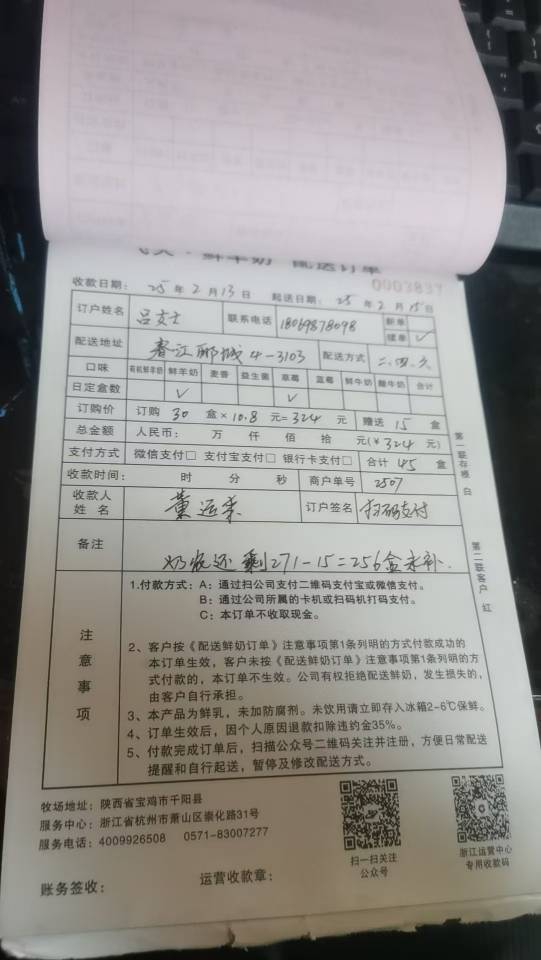 鲜羊奶 配送订单
0003837
收款日期: 25 年 2 月 13 日 起送日期: 25 年 2 月 15 日
订户姓名 联系电话 18069878098 新单
续单 ✓
配送地址 春江郦城 4-3103 配送方式 二.四.六
口味 有机鲜羊奶 鲜羊奶 麦香 益生菌 草莓 蓝莓 鲜牛奶 酸牛奶 合计
日定盒数 ✓ ✓
订购价 订购 30 盒×10.8 元=324 元 赠送 15 盒
总金额 人民币: 万 仟 佰 拾 元(¥324元)
支付方式 微信支付□ 支付宝支付□ 银行卡支付□ 合计 45 盒
收款时间: 时 分 秒 商户单号 2507
收款人姓名 董运荣 订户签名 扫码支付
备注 奶农还剩271-15=256盒未补.
第一联存根 白
第二联客户 红
注意事项
1.付款方式: A: 通过扫公司支付二维码支付宝或微信支付。
B: 通过公司所属的卡机或扫码机打码支付。
C: 本订单不收取现金。
2、客户按《配送鲜奶订单》注意事项第1条列明的方式付款成功的
本订单生效，客户未按《配送鲜奶订单》注意事项第1条列明的方
式付款的，本订单不生效。公司有权拒绝配送鲜奶，发生损失的，
由客户自行承担。
3、本产品为鲜乳，未加防腐剂。未饮用请立即存入冰箱2-6℃保鲜。
4、订单生效后，因个人原因退款扣除违约金35%。
5、付款完成订单后，扫描公众号二维码关注并注册，方便日常配送
提醒和自行起送，暂停及修改配送方式。
牧场地址: 陕西省宝鸡市千阳县
服务中心: 浙江省杭州市萧山区崇化路31号
服务电话: 4009926508 0571-83007277
扫一扫关注
公众号
浙江运营中心
专用收款码
账务签收: 运营收款章: